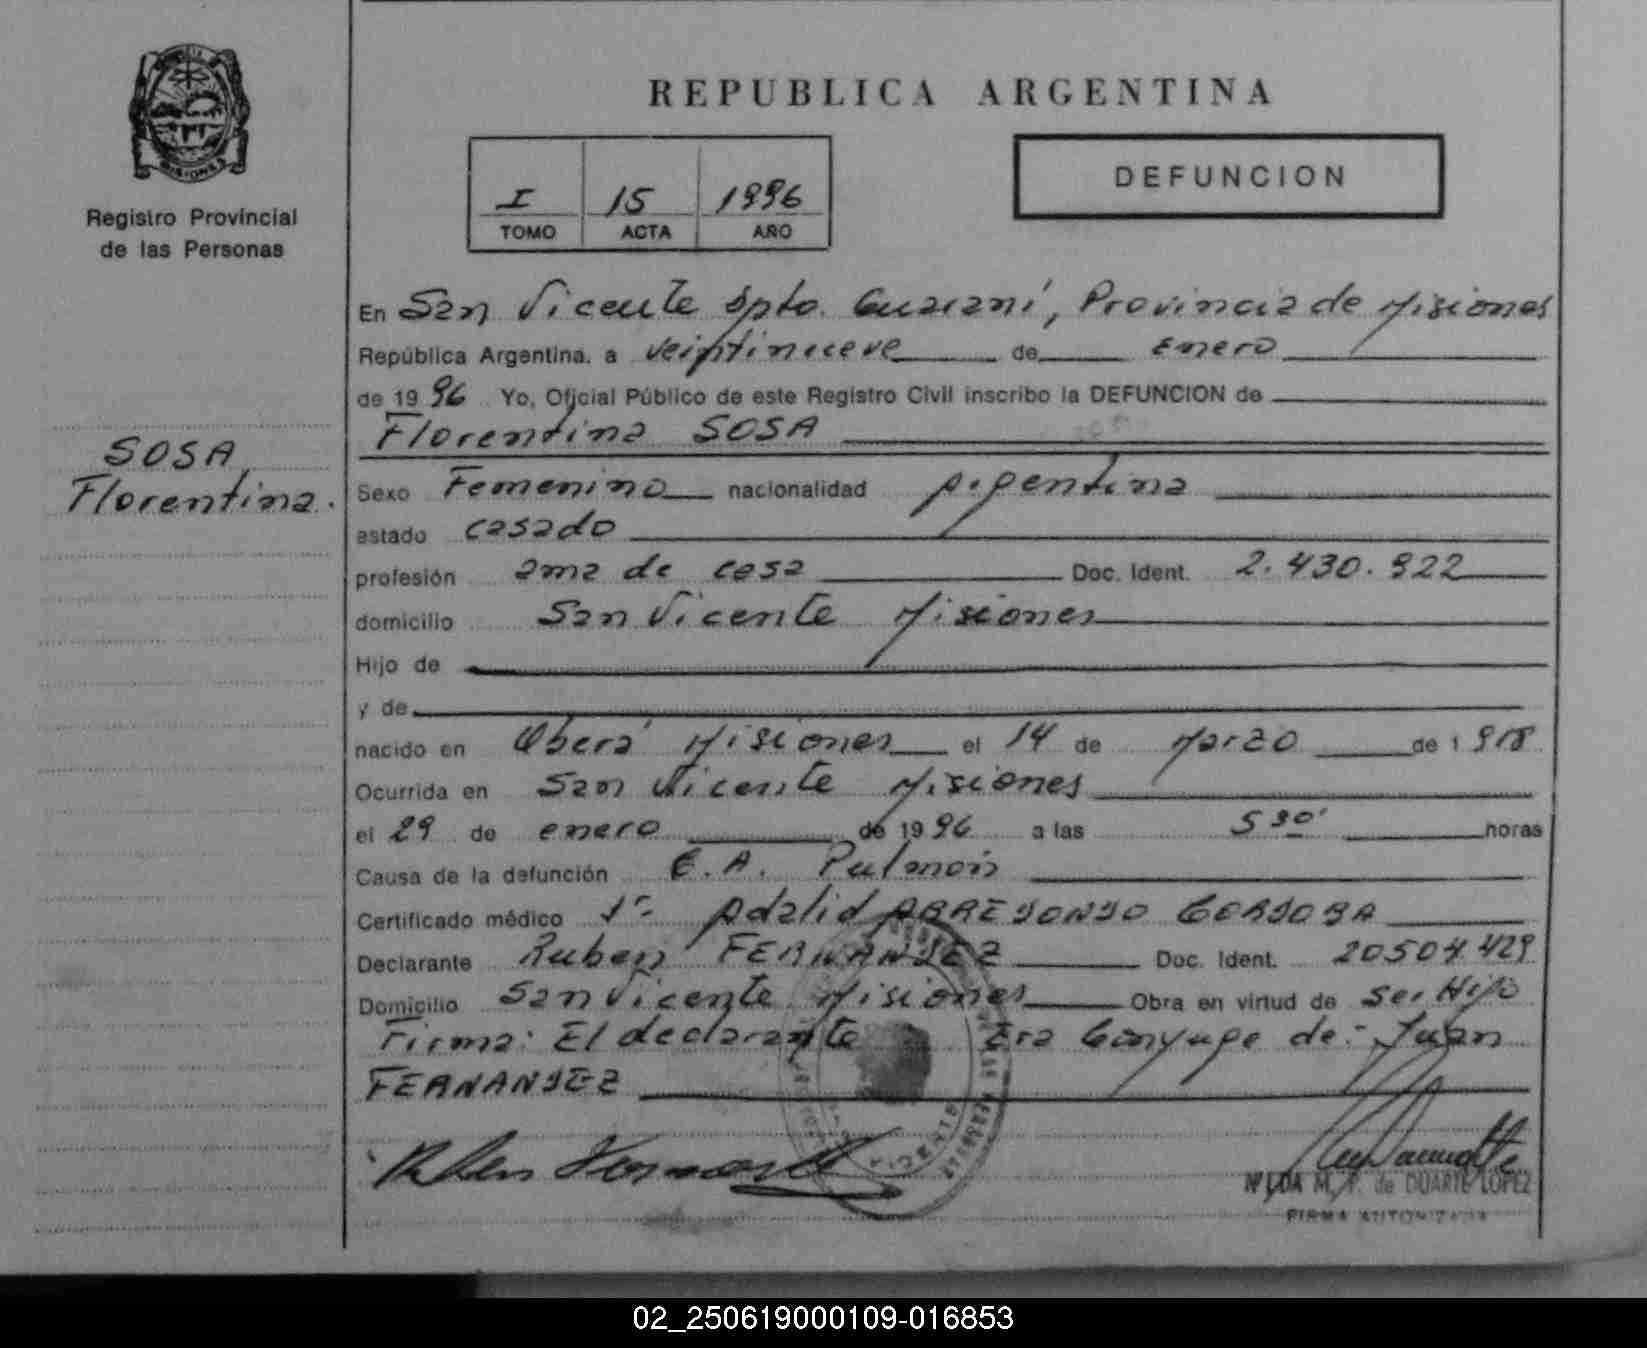 REPUBLICA ARGENTINA
MISIONES
Registro Provincial
de las Personas
I 15 1996
TOMO ACTA AÑO
DEFUNCION
SOSA
Florentina.
En San Vicente Dpto. Guaraní, Provincia de Misiones
República Argentina, a veintinueve de enero
de 1996 Yo, Oficial Público de este Registro Civil inscribo la DEFUNCION de
Florentina SOSA
Sexo Femenino nacionalidad Argentina
estado casado
profesión ama de casa Doc. Ident. 2.430.922
domicilio San Vicente Misiones
Hijo de
y de
nacido en Oberá Misiones el 14 de Marzo de 1918
Ocurrida en San Vicente Misiones
el 29 de enero de 1996 a las 5 30' horas
Causa de la defunción C.A. Pulmón
Certificado médico Dr. Adalid ARREDONDO CORDOBA
Declarante Ruben FERNANDEZ Doc. Ident. 20504.429
Domicilio San Vicente Misiones Obra en virtud de Ser Hijo
Firma: El declarante Era Cónyuge de: Juan
FERNANDEZ
NILDA M. F. de DUARTE LOPEZ
FIRMA AUTORIZADA
02_250619000109-016853